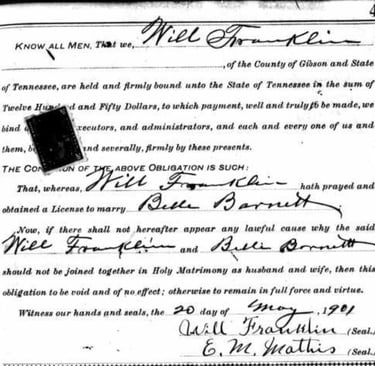 4
KNOW ALL MEN, That we, Will Franklin
, of the County of Gibson and State
of Tennessee, are held and firmly bound unto the State of Tennessee in the sum of
Twelve Hund ed and Fifty Dollars, to which payment, well and truly to be made, we
bind o xecutors, and administrators, and each and every one of us and
them, b and severally, firmly by these presents.
THE CON ON OF THE ABOVE OBLIGATION IS SUCH:
That, whereas, Will Franklin hath prayed and
obtained a License to marry Belle Barnett.
Now, if there shall not hereafter appear any lawful cause why the said
Will Franklin and Belle Barnett
should not be joined together in Holy Matrimony as husband and wife, then this
obligation to be void and of no effect; otherwise to remain in full force and virtue.
Witness our hands and seals, the 20 day of May, 1901
Will Franklin (Seal.)
E. M. Mathis (Seal.)